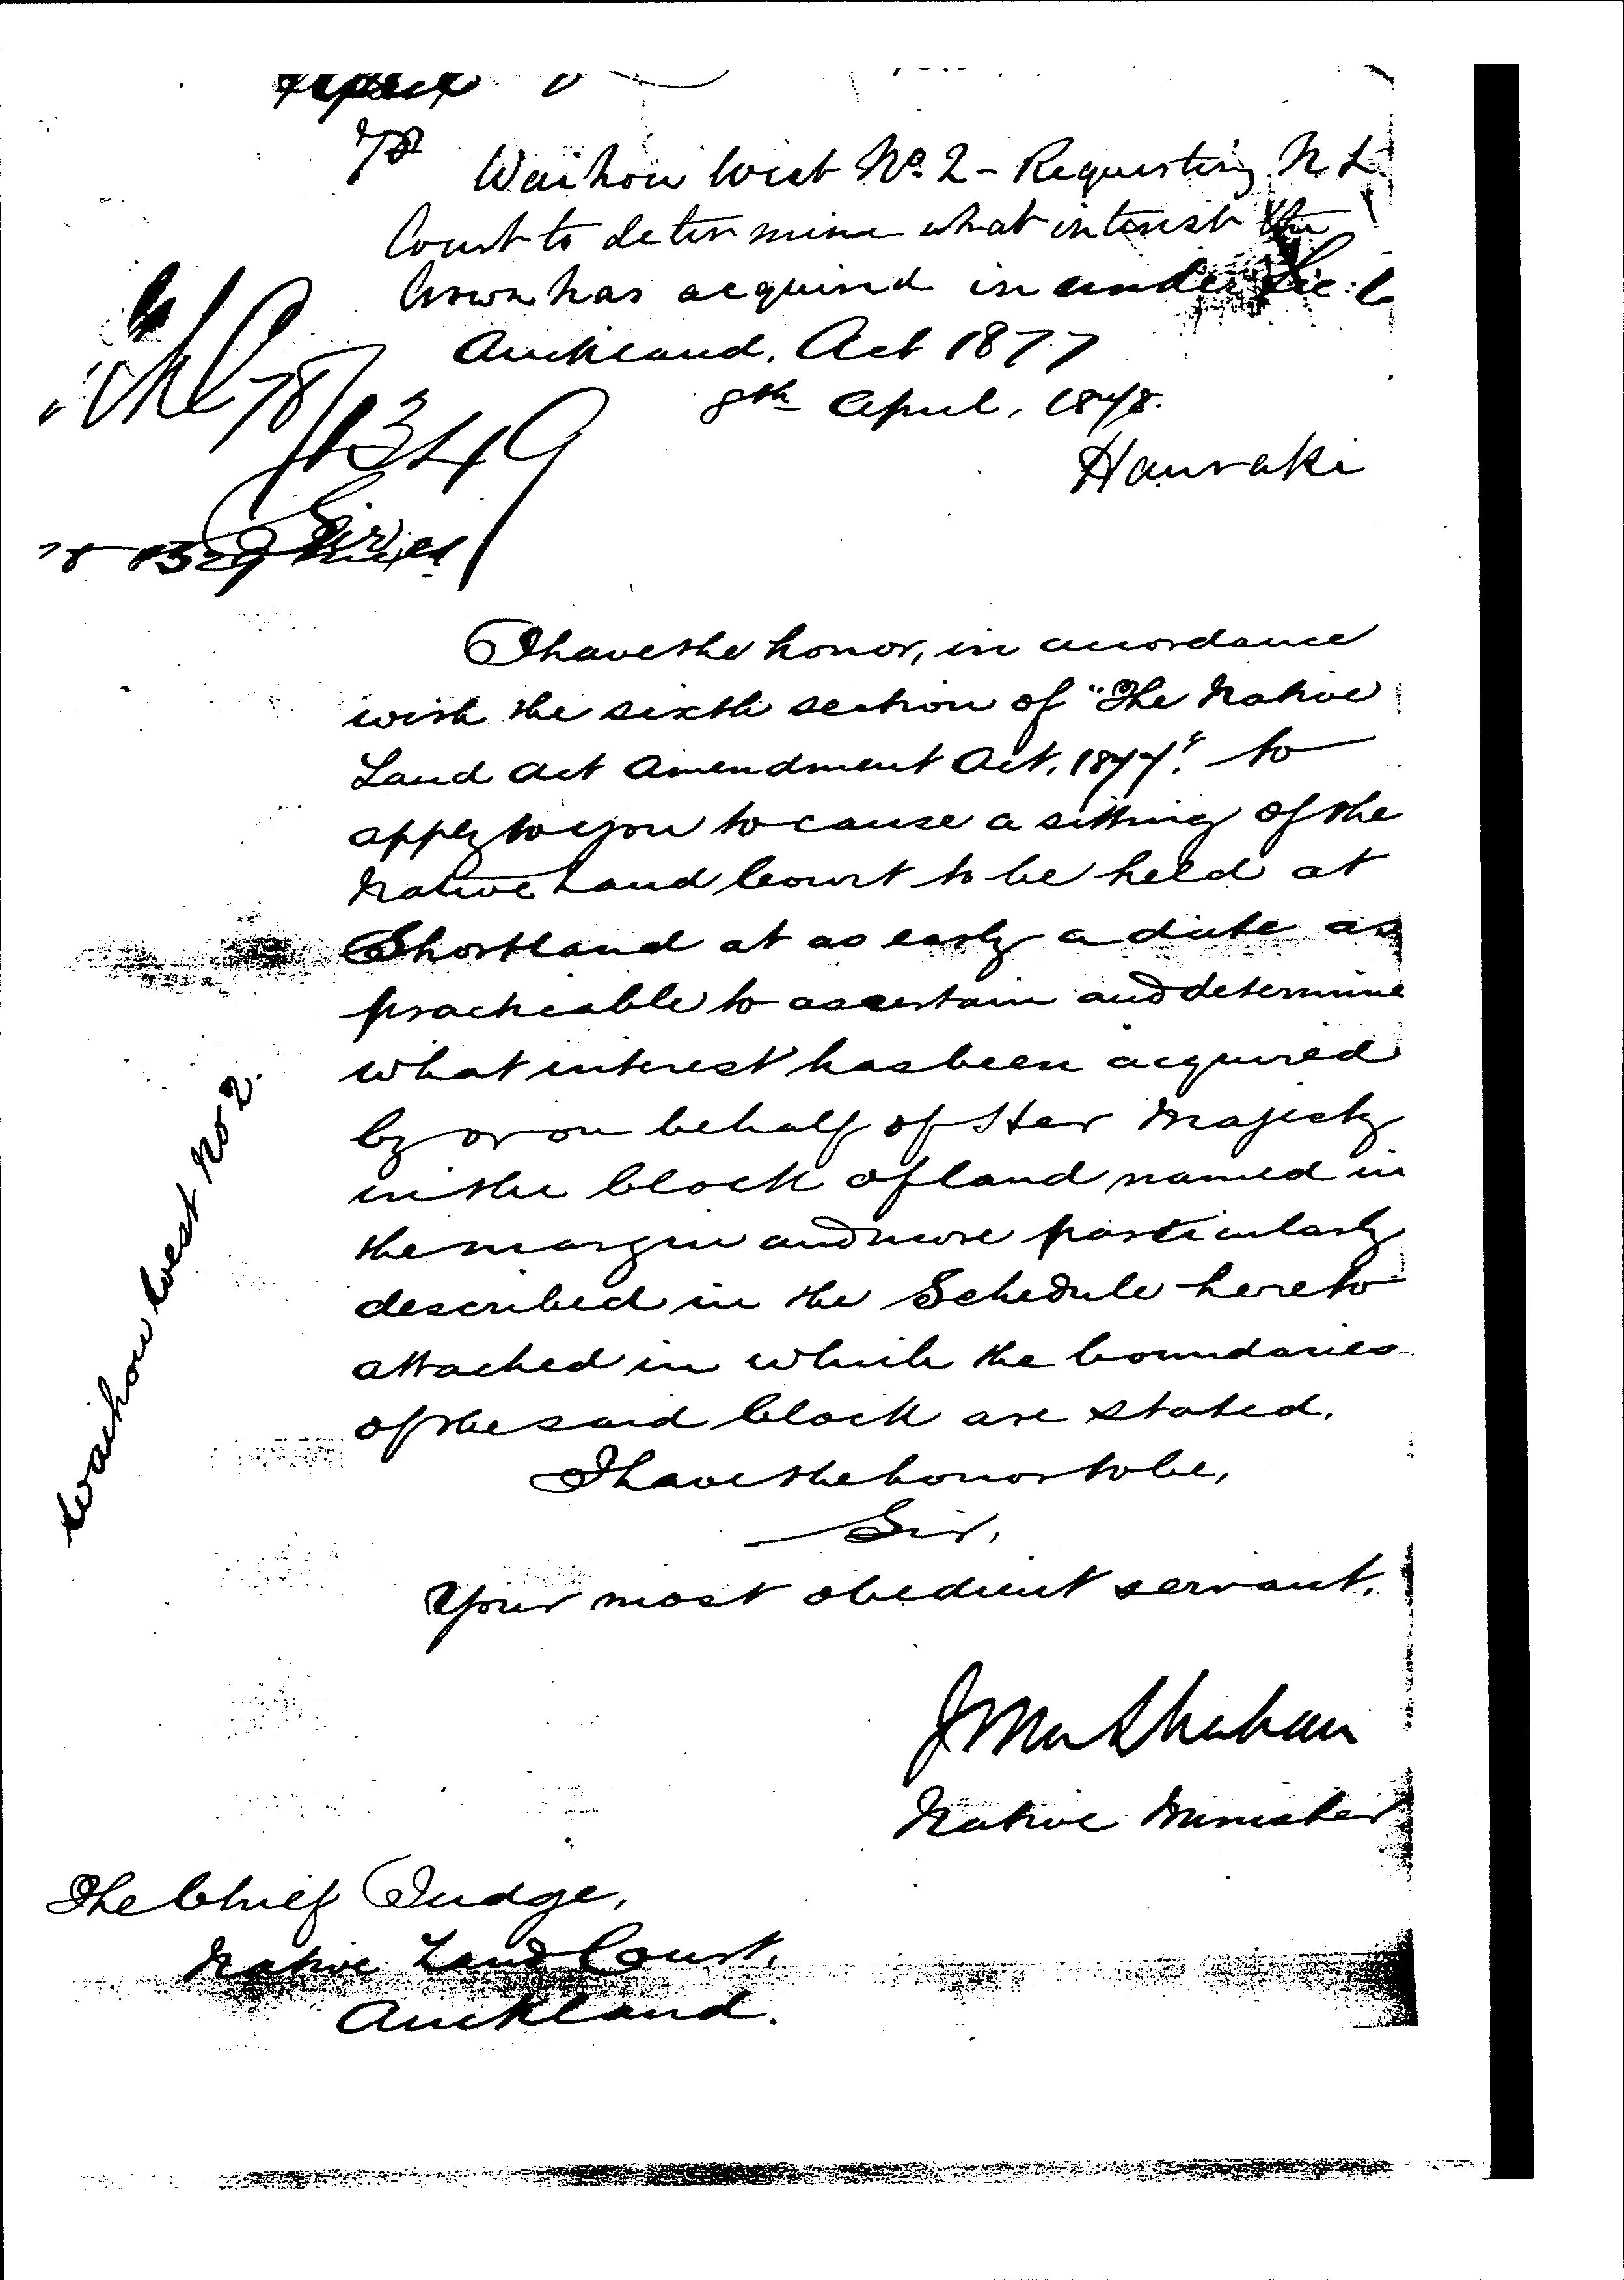 Waihou West No. 2 - Requesting N L
Court to determine what interest the
Crown has acquired in under Sec: 6
Auckland. Act 1877
8th April, 1878.
Hauraki
78/1349
Sir,
I have the honor, in accordance
with the sixth section of "The Native
Land Act Amendment Act, 1877", to
apply to you to cause a sitting of the
Native Land Court to be held at
Shortland at as early a date as
practicable to ascertain and determine
what interest has been acquired
by or on behalf of Her Majesty
in the block of land named in
the margin and more particularly
described in the Schedule hereto
attached in which the boundaries
of the said block are stated.
Waihou West No 2.
I have the honor to be,
Sir,
Your most obedient servant,
Native Minister
The Chief Judge,
Native Land Court,
Auckland.